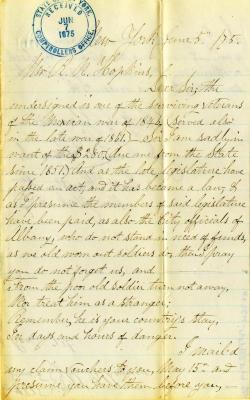 STATE OF NEW YORK
RECEIVED
JUN
1875
COMPTROLLER'S OFFICE
New York June 5th 1875.
Hopkins,
Dear Sir, the
undersigned is one of the surviving veterans
of the Mexican war of 1846 (served also
in the late war of 1861) I am sadly in
want of the due me from the State
since 1857. And as the late legislature have
passed an act, and it has became a law, &
as I presume the members of said legislature
have been paid, as also the City officials of
Albany, who do not stand in need of funds,
as we old worn out soldiers do, I pray
you do not forget us, and
from the poor old soldier turn not away,
Nor treat him as a stranger;
Remember, he is your country's stay,
In days and hours of danger.
I mailed
my claim vouchers to you, May 15th and
presume you have them before you,